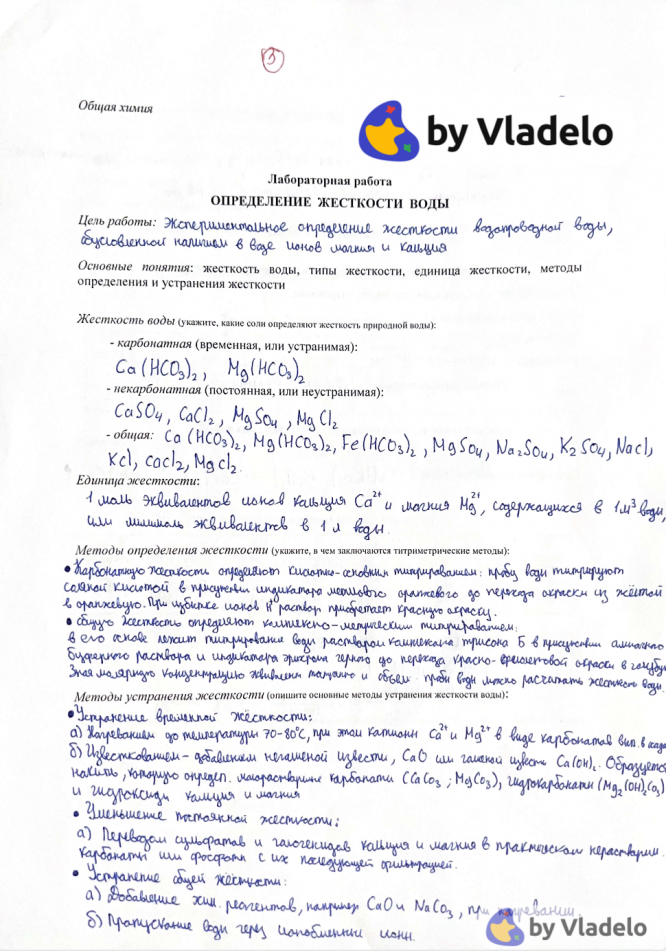 3
Общая химия
by Vladelo
Лабораторная работа
ОПРЕДЕЛЕНИЕ ЖЕСТКОСТИ ВОДЫ
Цель работы: Экспериментальное определение жесткости водопроводной воды,
обусловленной наличием в воде ионов магния и кальция
Основные понятия: жесткость воды, типы жесткости, единица жесткости, методы
определения и устранения жесткости
Жесткость воды (укажите, какие соли определяют жесткость природной воды):
- карбонатная (временная, или устранимая):
Ca(HCO₃)₂, Mg(HCO₃)₂
- некарбонатная (постоянная, или неустранимая):
CaSO₄, CaCl₂, MgSO₄, MgCl₂
- общая: Ca(HCO₃)₂, Mg(HCO₃)₂, Fe(HCO₃)₂, MgSO₄, Na₂SO₄, K₂SO₄, NaCl,
KCl, CaCl₂, MgCl₂.
Единица жесткости:
1 моль эквивалентов ионов кальция Ca²⁺ и магния Mg²⁺, содержащихся в 1 м³ воды,
или миллимоль эквивалентов в 1 л воды.
Методы определения жесткости (укажите, в чем заключаются титриметрические методы):
• Карбонатную жесткость определяют кислотно-основным титрированием: пробу воды титруют
соляной кислотой в присутствии индикатора метилового оранжевого до перехода окраски из жёлтой
в оранжевую. При избытке ионов H⁺ раствор приобретает красную окраску.
• общую жесткость определяют комплексно-метрическим титрированием:
в его основе лежит титрование воды раствором комплексона трилона Б в присутствии аммиачно
буферного раствора и индикатора эриохрома черного до перехода красно-фиолетовой окраски в голубую
Зная молярную концентрацию эквивалента титранта и объем пробы воды можно рассчитать жесткость воды.
Методы устранения жесткости (опишите основные методы устранения жесткости воды):
• Устранение временной жёсткости:
а) Нагреванием до температуры 70-80°C, при этом катионы Ca²⁺ и Mg²⁺ в виде карбонатов вып. в осад
б) Известкованием - добавлением негашеной извести, CaO или гашеной извести Ca(OH)₂. Образуется
накипь, которую определ. малорастворимые карбонаты (CaCO₃; MgCO₃), гидрокарбонаты (Mg₂(OH)₂CO₃)
и гидроксиды кальция и магния
• Уменьшение постоянной жесткости:
а) Переводом сульфатов и галогенидов кальция и магния в практически нерастворим.
карбонаты или фосфаты с их последующей фильтрацией.
• Устранение общей жёсткости:
а) Добавление хим. реагентов, например CaO и NaCO₃, при нагревании.
б) Пропускание воды через ионообменный
by Vladelo